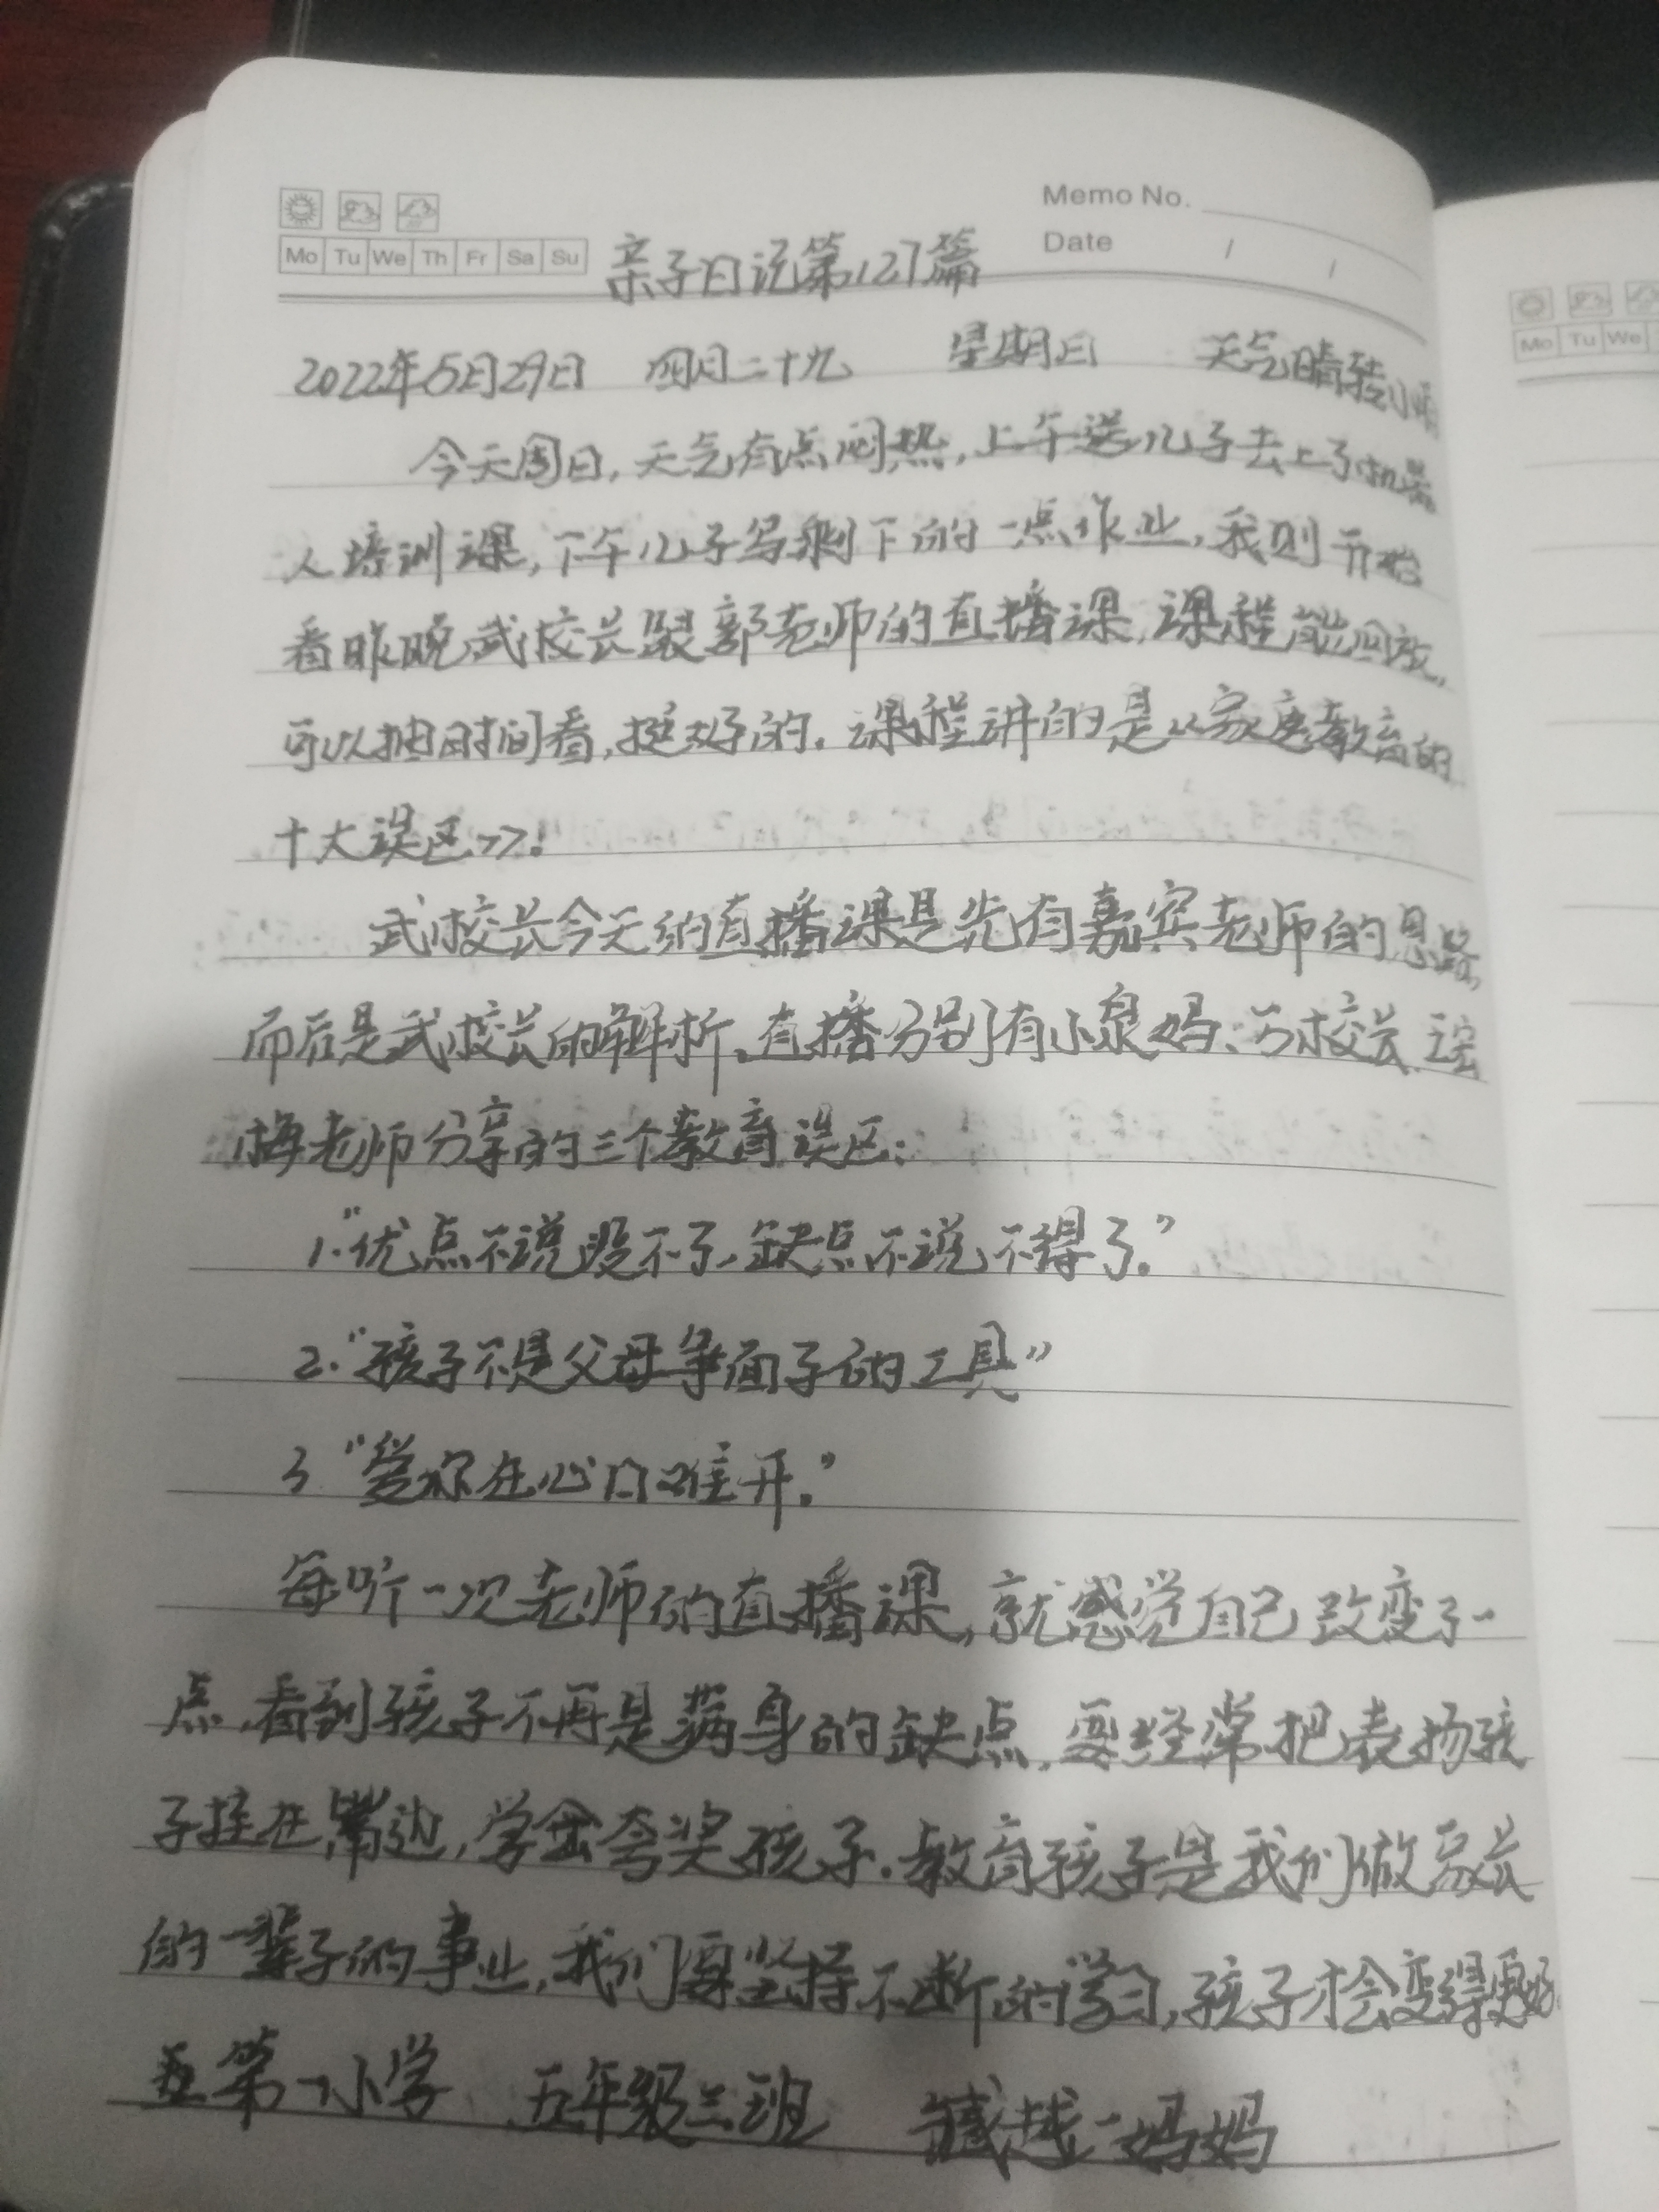 Memo No.
Date / /
Mo Tu We Th Fr Sa Su
亲子日记第127篇
2022年5月29日 四月二十九 星期日 天气晴转小雨
今天周日,天气有点闷热,上午送儿子去上了机器
人培训课,下午儿子写剩下的一点作业,我则开始
看昨晚武校长跟郭老师的直播课,课程能回放,
可以抽时间看,挺好的。课程讲的是《家庭教育的
十大误区>>!
武校长今天的直播课是先有嘉宾老师的思路,
而后是武校长的解析。直播分别有小泉妈、万校长、
梅老师分享的三个教育误区:
1.“优点不说没不了,缺点不说不得了。”
2.“孩子不是父母争面子的工具”
3“爱你在心口难开。”
每听一次老师的直播课,就感觉自己改变了一
点,看到孩子不再是满身的缺点,要经常把表扬孩
子挂在嘴边,学会夸奖孩子。教育孩子是我们做家长
的一辈子的事业,我们要坚持不断的学习,孩子才会变得更好。
第一小学 五年级三班 臧越一妈妈
Mo Tu We